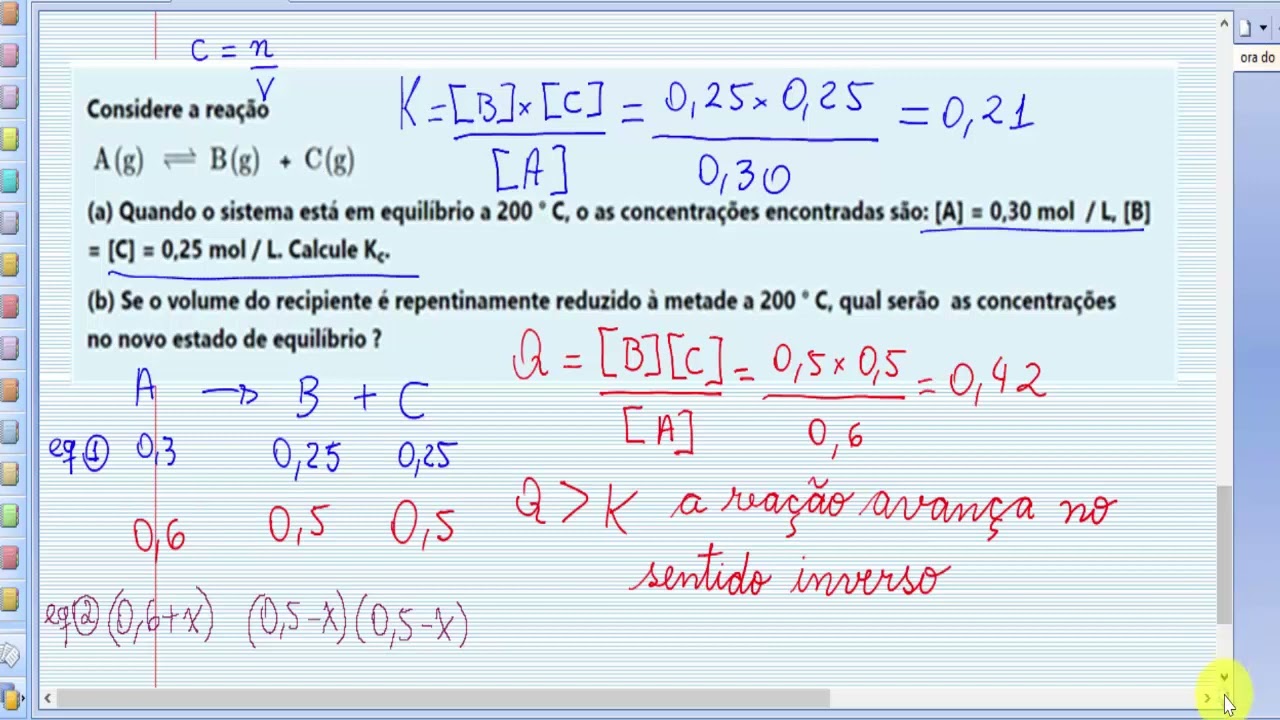 ora do
C = n/V
K = [B] × [C] / [A] = 0,25 × 0,25 / 0,30 = 0,21
Considere a reação
A(g) ⇌ B(g) + C(g)
(a) Quando o sistema está em equilíbrio 200 ° C, o as concentrações encontradas são: [A] = 0,30 mol / L, [B]
= [C] = 0,25 mol / L. Calcule Kc.
(b) Se o volume do recipiente é repentinamente reduzido à metade a 200 ° C, qual serão as concentrações
no novo estado de equilíbrio ?
Q = [B][C] / [A] = 0,5 × 0,5 / 0,6 = 0,42
A → B + C
eq ① 0,3 0,25 0,25
0,6 0,5 0,5
Q > K a reação avança no
sentido inverso
eq ② (0,6+x) (0,5-x) (0,5-x)